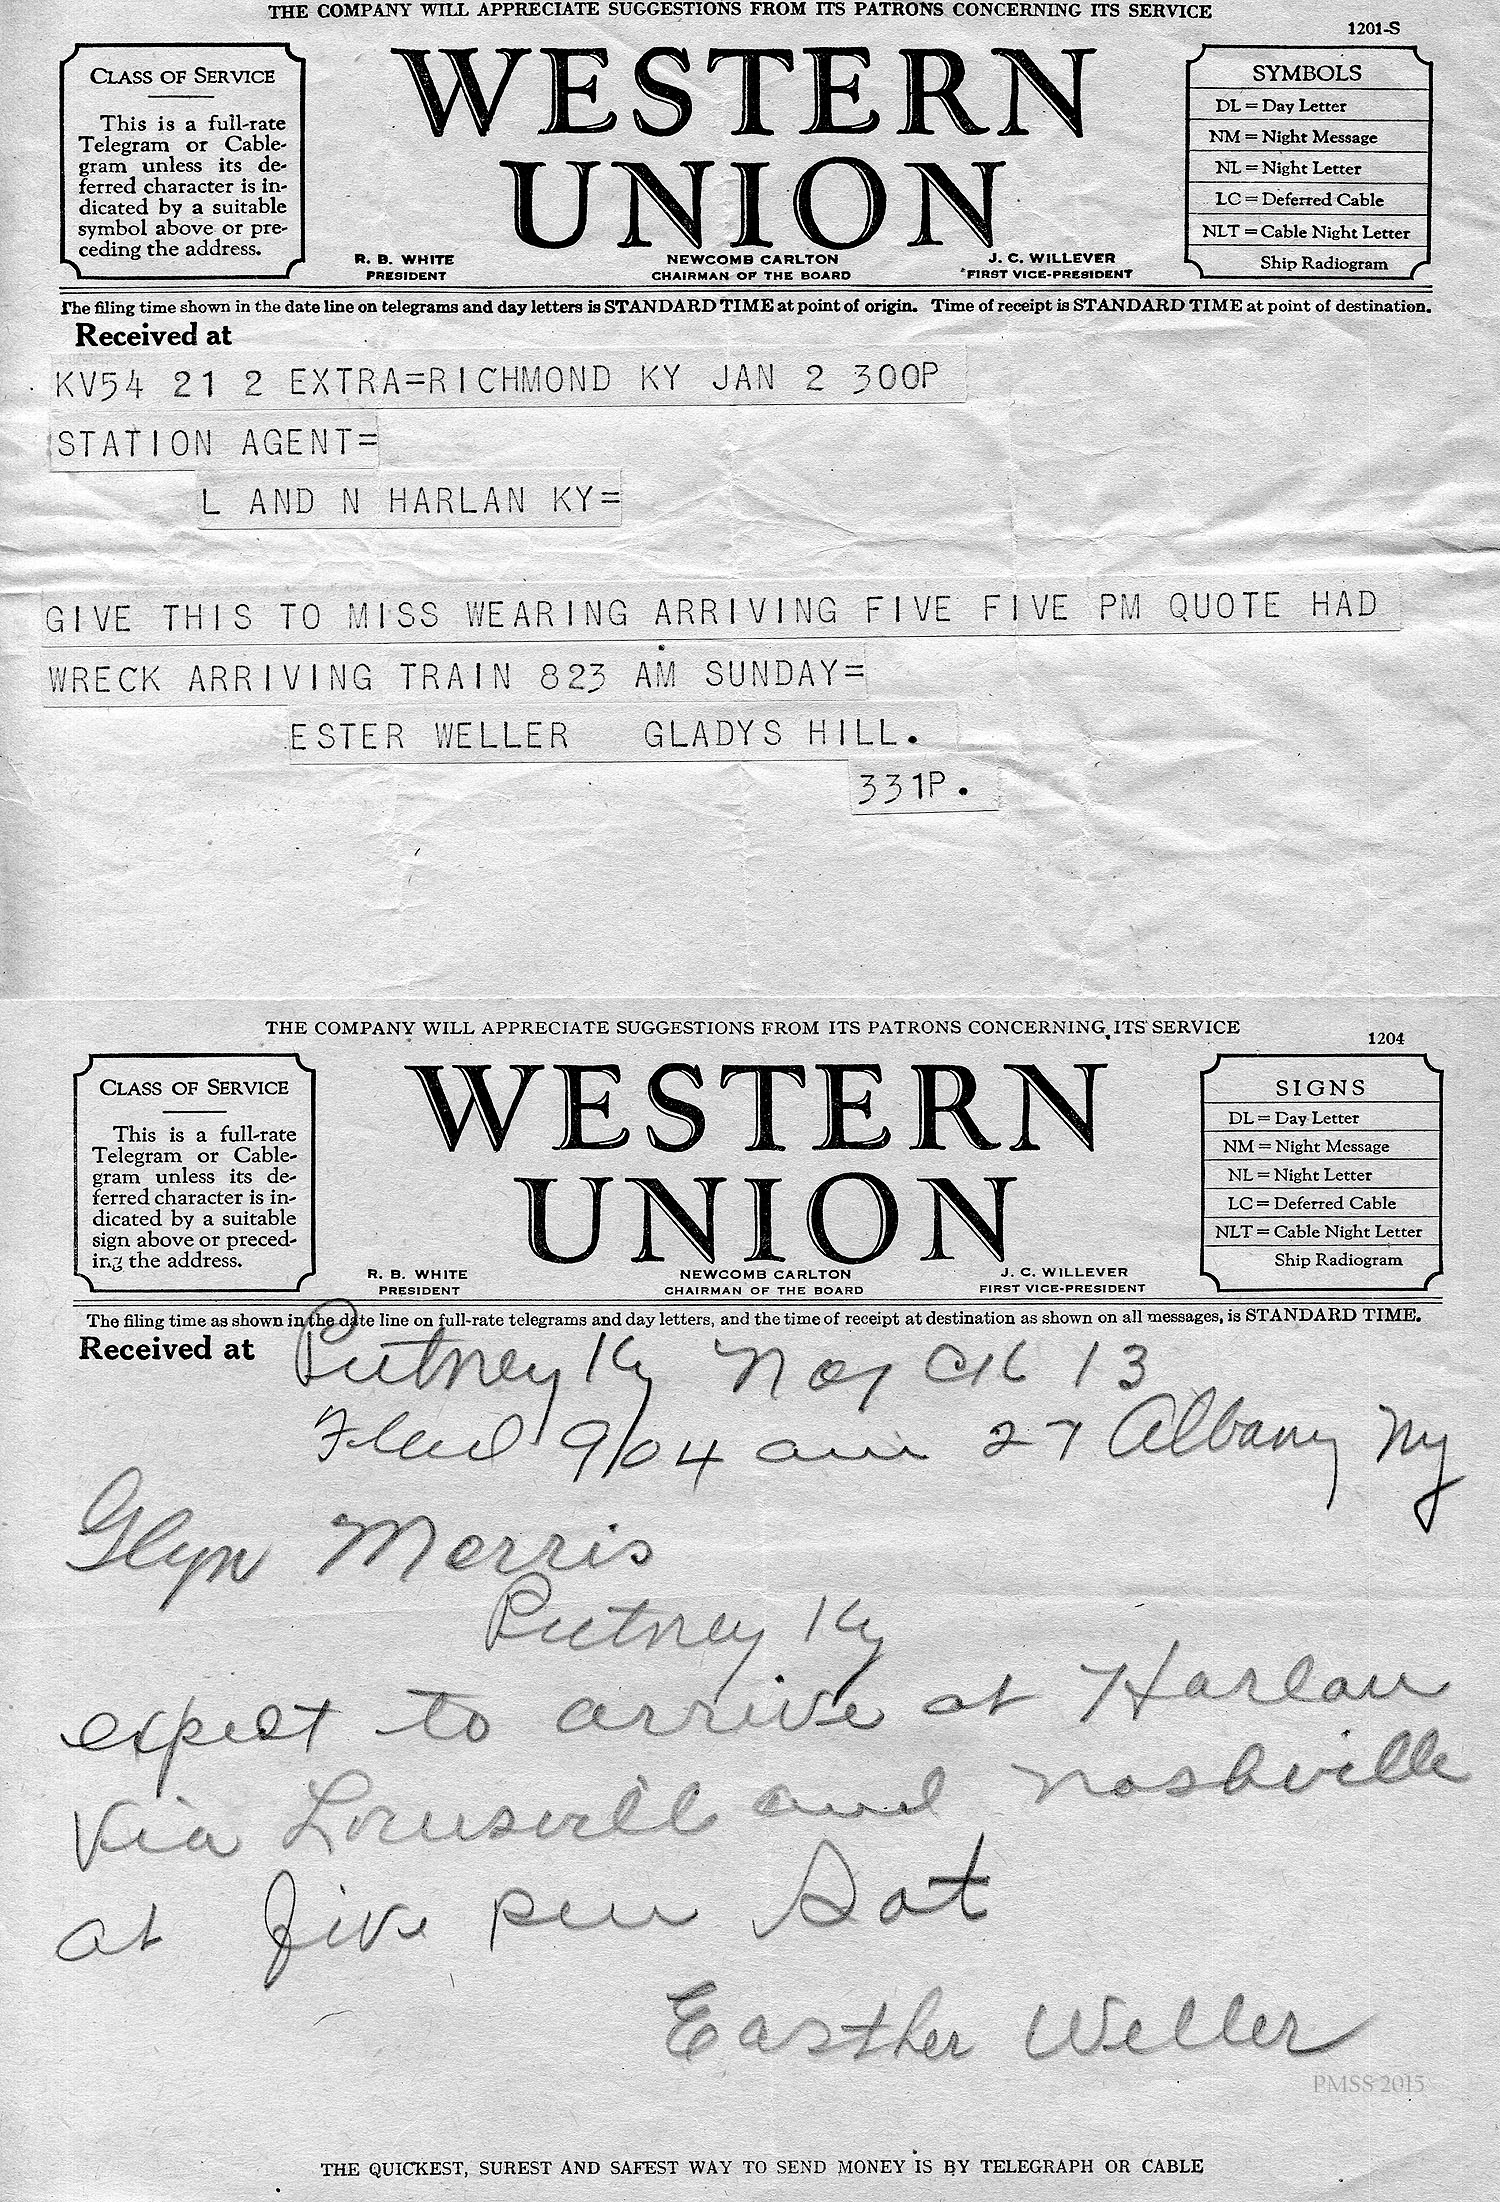 THE COMPANY WILL APPRECIATE SUGGESTIONS FROM ITS PATRONS CONCERNING ITS SERVICE
1201-S
CLASS OF SERVICE
This is a full-rate
Telegram or Cable-
gram unless its de-
ferred character is in-
dicated by a suitable
symbol above or pre-
ceding the address.
WESTERN
UNION
R. B. WHITE
PRESIDENT
NEWCOMB CARLTON
CHAIRMAN OF THE BOARD
J. C. WILLEVER
FIRST VICE-PRESIDENT
SYMBOLS
DL = Day Letter
NM = Night Message
NL = Night Letter
LC = Deferred Cable
NLT = Cable Night Letter
Ship Radiogram
The filing time shown in the date line on telegrams and day letters is STANDARD TIME at point of origin. Time of receipt is STANDARD TIME at point of destination.
Received at
KV54 21 2 EXTRA=RICHMOND KY JAN 2 300P
STATION AGENT=
L AND N HARLAN KY=
GIVE THIS TO MISS WEARING ARRIVING FIVE FIVE PM QUOTE HAD
WRECK ARRIVING TRAIN 823 AM SUNDAY=
ESTER WELLER GLADYS HILL.
331P.
THE COMPANY WILL APPRECIATE SUGGESTIONS FROM ITS PATRONS CONCERNING ITS SERVICE
1204
CLASS OF SERVICE
This is a full-rate
Telegram or Cable-
gram unless its de-
ferred character is in-
dicated by a suitable
sign above or preced-
ing the address.
WESTERN
UNION
R. B. WHITE
PRESIDENT
NEWCOMB CARLTON
CHAIRMAN OF THE BOARD
J. C. WILLEVER
FIRST VICE-PRESIDENT
SIGNS
DL = Day Letter
NM = Night Message
NL = Night Letter
LC = Deferred Cable
NLT = Cable Night Letter
Ship Radiogram
The filing time as shown in the date line on full-rate telegrams and day letters, and the time of receipt at destination as shown on all messages, is STANDARD TIME.
Received at
Putney Ky CK 13
9/04 am 27 Albany Ny
Glyn Morris
Putney Ky
expect to arrive at Harlan
Via Louisvill and nashville
at five pm Sat
Easther Weller
PMSS 2015
THE QUICKEST, SUREST AND SAFEST WAY TO SEND MONEY IS BY TELEGRAPH OR CABLE